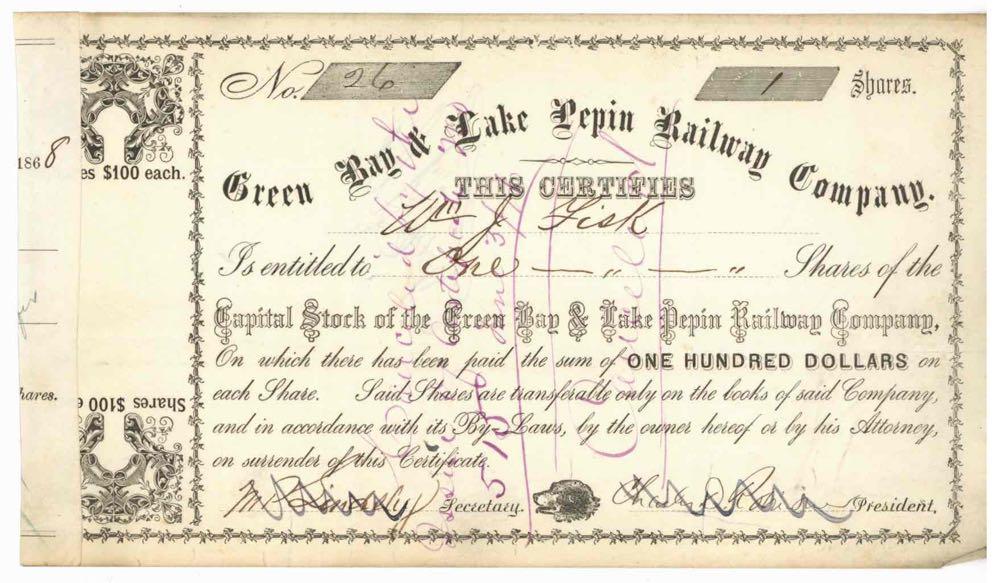 No. 26
1 Shares.
Green Bay & Lake Pepin Railway Company.
THIS CERTIFIES
Wm J. Fisk
Is entitled to One — " — " Shares of the
Capital Stock of the Green Bay & Lake Pepin Railway Company,
On which there has been paid the sum of ONE HUNDRED DOLLARS on
each Share. Said Shares are transferable only on the books of said Company,
and in accordance with its By-Laws, by the owner hereof or by his Attorney,
on surrender of this Certificate.
Secretary.
President.
1868
es $100 each.
hares.
Shares $100 e
Cancelled